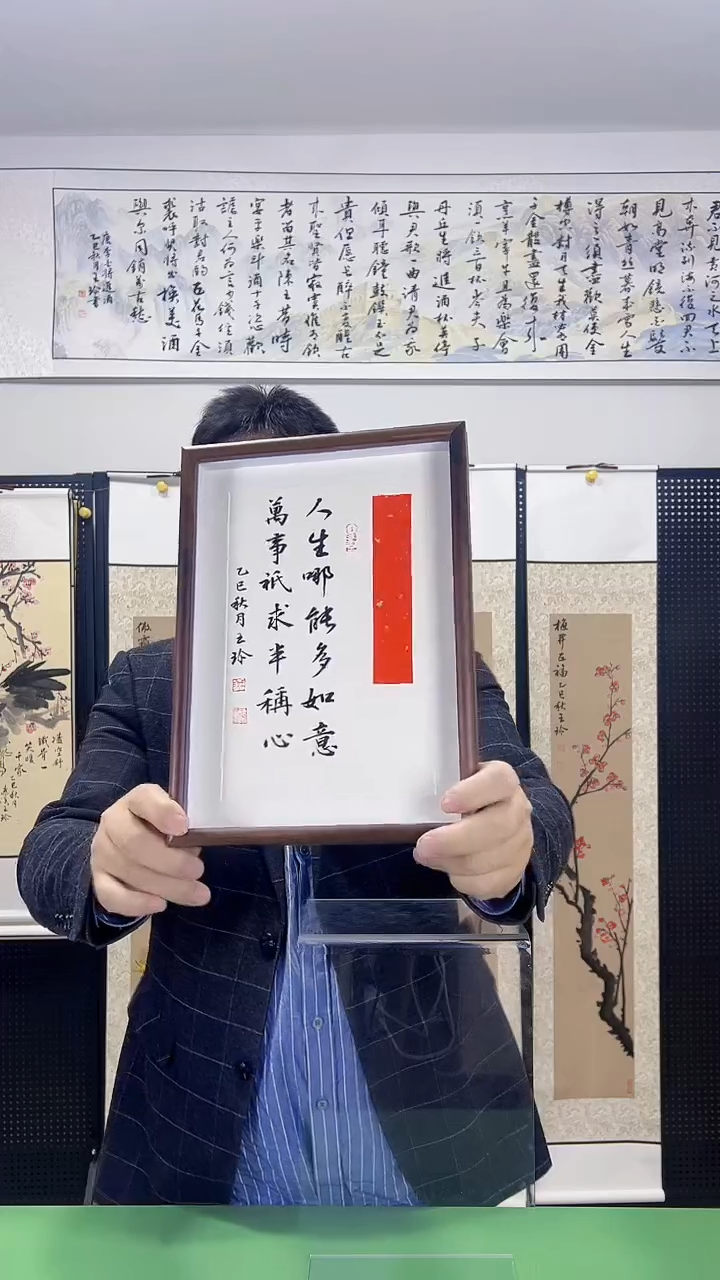 君不見黃河之水天上
來奔流到海不復回君不
見高堂明鏡悲白髮
朝如青絲暮成雪人生
得意須盡歡莫使金
樽空對月天生我材必有用
千金散盡還復來
烹羊宰牛且為樂會
須一飲三百杯岑夫子
丹丘生將進酒杯莫停
與君歌一曲請君為我
傾耳聽鐘鼓饌玉不足
貴但愿長醉不愿醒古
來聖賢皆寂寞惟有飲
者留其名陳王昔時
宴平樂斗酒十千恣歡
謔主人何為言少錢徑須
沽取對君酌五花馬千金
裘呼兒將出換美酒
與爾同銷萬古愁
唐李白將進酒
乙巳秋月王玲書
人生哪能多如意
萬事祇求半稱心
乙巳秋月王玲
梅開五福乙巳秋王玲